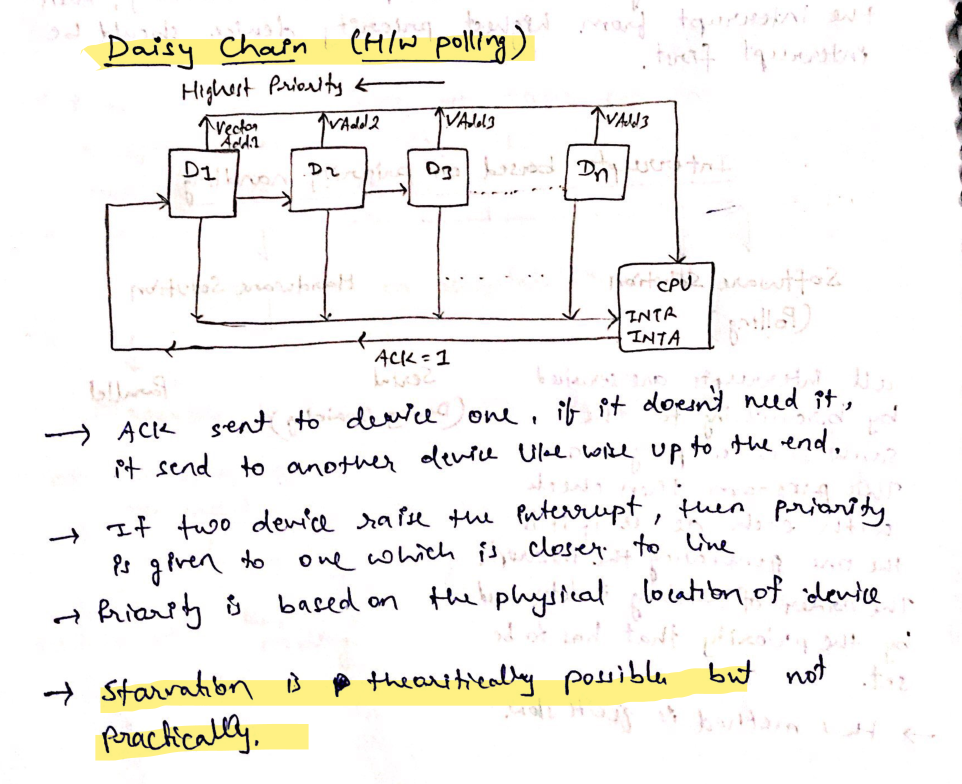 Daisy Chain (H/W polling)
Highest Priority ←
Vector Add.1
VAdd2
VAdd3
VAdd3
D1
D2
D3
Dn
CPU
INTR
INTA
ACK = 1
→ ACK sent to device one, if it doesn't need it,
it send to another device like wise up to the end.
→ If two device raise the interrupt, then priority
is given to one which is closer to line
→ Priority is based on the physical location of device
→ Starvation is thearitically possible but not
practically.